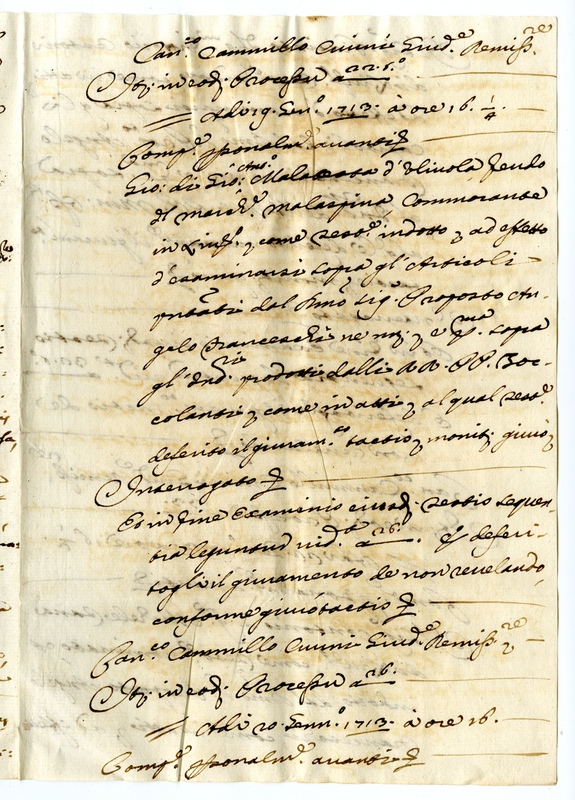 Can.co Cammillo Cuini Giud.e Remiss.re
It: in eod: Processu a 22. t.o
Adi 9. Gen.o 1713. à ore 16. 1/4.
Comp.e pponalm.e avanti
Gio: di Gio: Ant.o Malatesta d'Olivola feudo
del March.e Malaspina, Commorante
in come test.o indotto, ad effetto
d'esaminarsi sopra gl'Articoli
pntati dal Rmo Sig.r Proposto An-
gelo Franceschi ne sopra
gl' prodotti dalli RR. PP. Zoc-
colanti come in atti, al qual test.o
deferito il giuram.to tactis, monit: giurò
Interrogato
Et in fine Examinis eiusd: testis sequen-
tia leguntur vid.t a 26. E deferi-
togli il giuramento de non revelando,
conforme giurò tactis
Can.co Cammillo Cuini Giud.e Remiss.re
It: in eod: Processu a 26.
Adi 20 Genn.o 1713. à ore 16.
Comp.e pponalm.e avanti